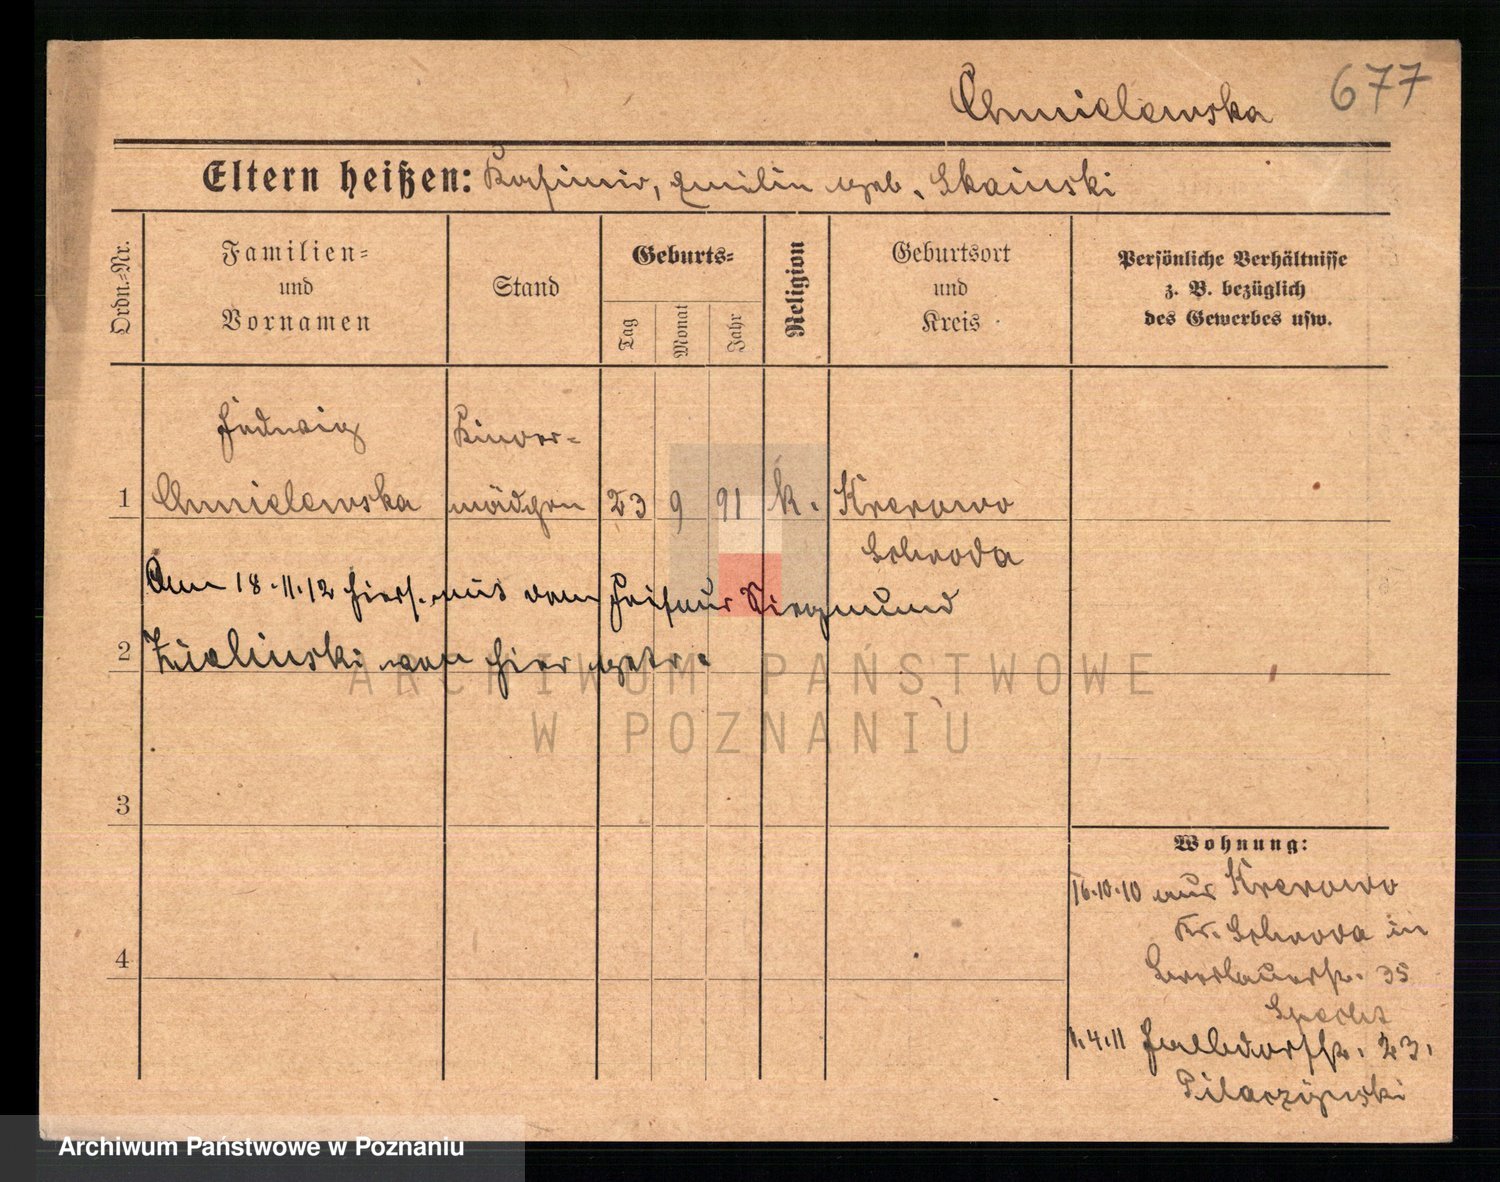 Chmielewska 677
Eltern heißen: Kasimir, Emilie geb. Skainski
Ordn.-Nr.
Familien-
und
Vornamen
Stand
Geburts-
Tag
Monat
Jahr
Religion
Geburtsort
und
Kreis
Persönliche Verhältnisse
z. B. bezüglich
des Gewerbes usw.
Hedwig Kinder-
1 Chmielewska mädchen 23 9 91 k. Krerowo
Schroda
Am 18.11.12 hiers. mit dem Friseur Siegmund
2 Zielinski von hier getr.
3
4
Wohnung:
16.10.10 aus Krerowo
Kr. Schroda in
Breslauerstr. 35
Specht
1.4.11 Halbdorfstr. 23.
ARCHIWUM PAŃSTWOWE
W POZNANIU
Archiwum Państwowe w Poznaniu